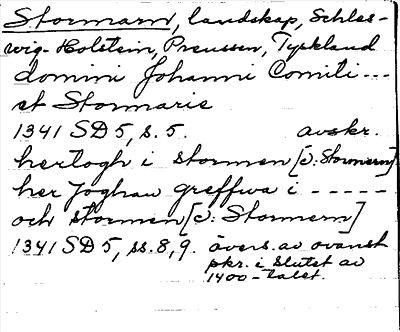 Stormarn, landskap, Schles-
wig-Holstein, Preussen, Tyskland
domini Johanni Comiti ---
et Stormarie
1341 SD 5, s. 5. avskr.
hertogh i stormen [ɔ: Stormern]
her Joghan greffwa i - - - - -
och stormen [ɔ: Stormern]
1341 SD 5, ss. 8, 9. övers. av ovanst
pkr. i slutet av
1400-talet.